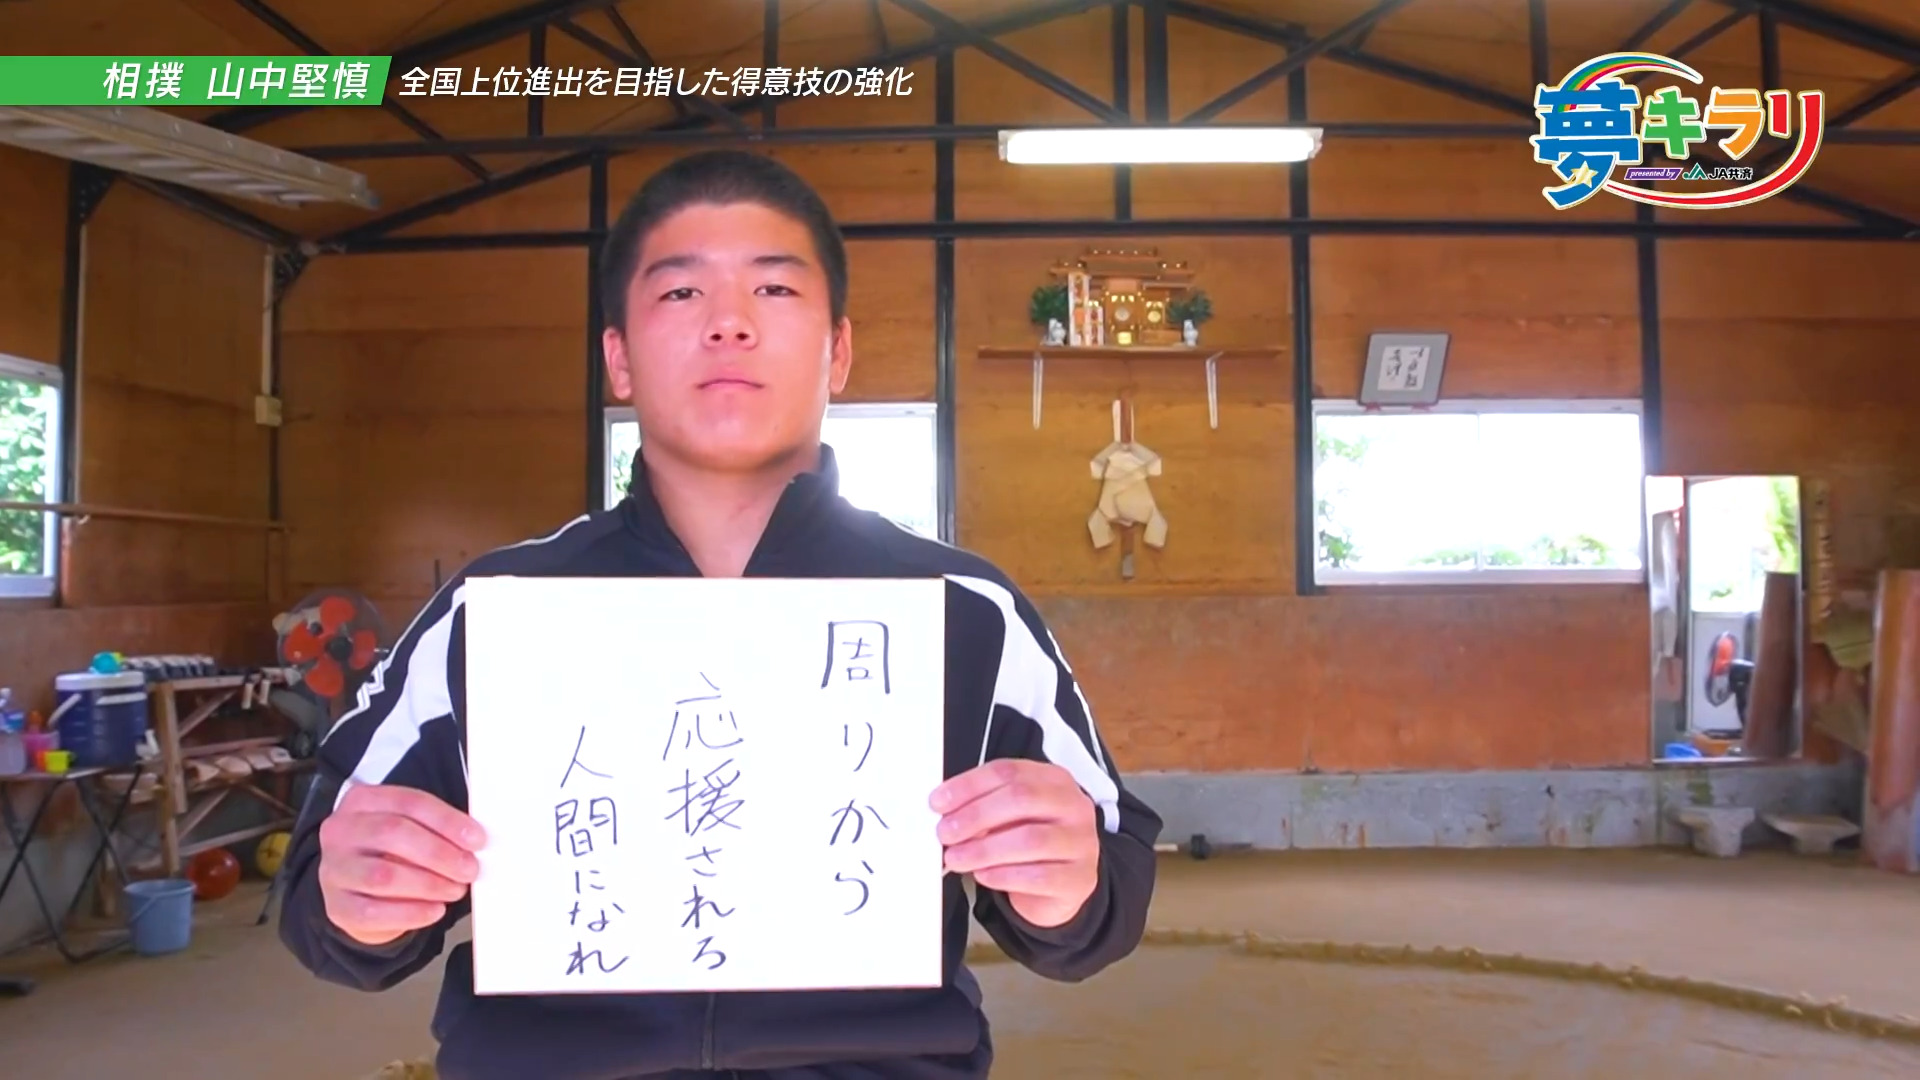 相撲 山中堅慎
全国上位進出を目指した得意技の強化
夢キラリ
presented by JA共済
周りから
応援される
人間になれ